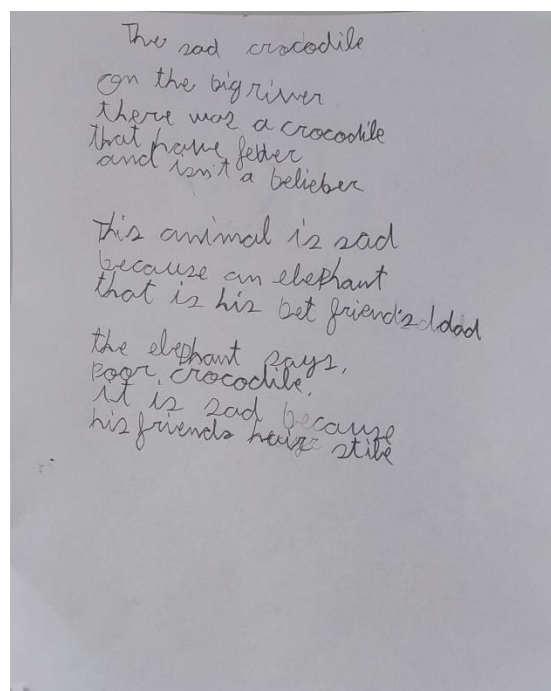 The sad crocodile
on the big river
there was a crocodile
that have fever
and isn't a belieber
This animal is sad
because an elephant
that is his bet friend's dad
the elephant says,
poor, crocodile,
it is sad because
his friends hair stile